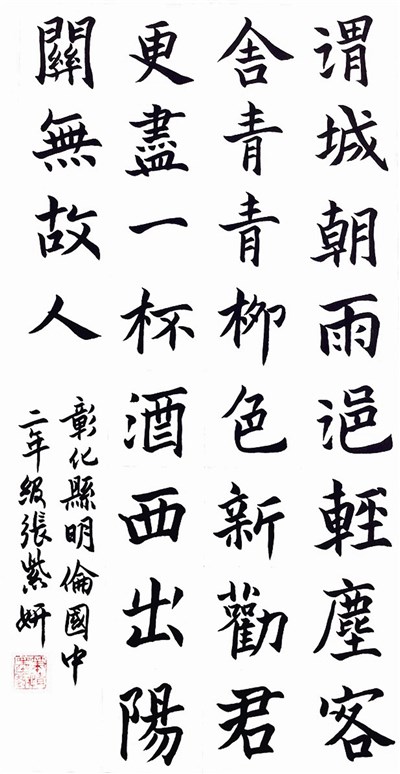 渭城朝雨浥輕塵客
舍青青柳色新勸君
更盡一杯酒西出陽
關無故人
彰化縣明倫國中
二年級張紫妍